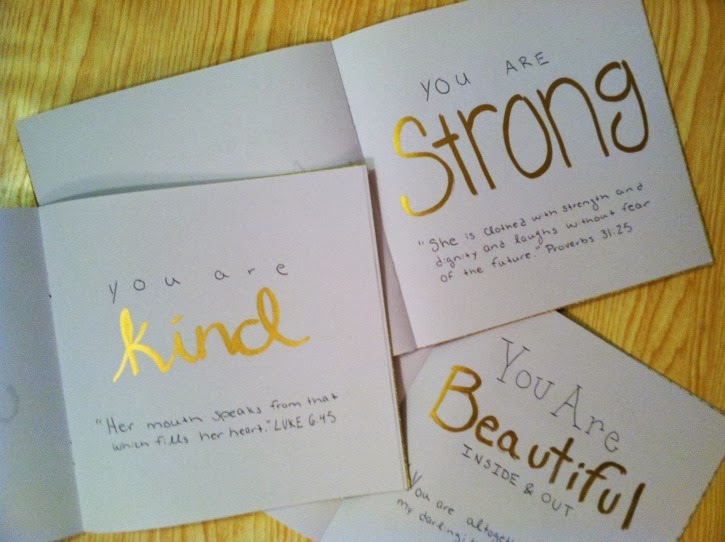 YOU ARE
Strong
"She is clothed with strength and
dignity and laughs without fear
of the future." Proverbs 31:25
you are
kind
"Her mouth speaks from that
which fills her heart." LUKE 6:45
You Are
Beautiful
INSIDE & OUT
You are
my darling